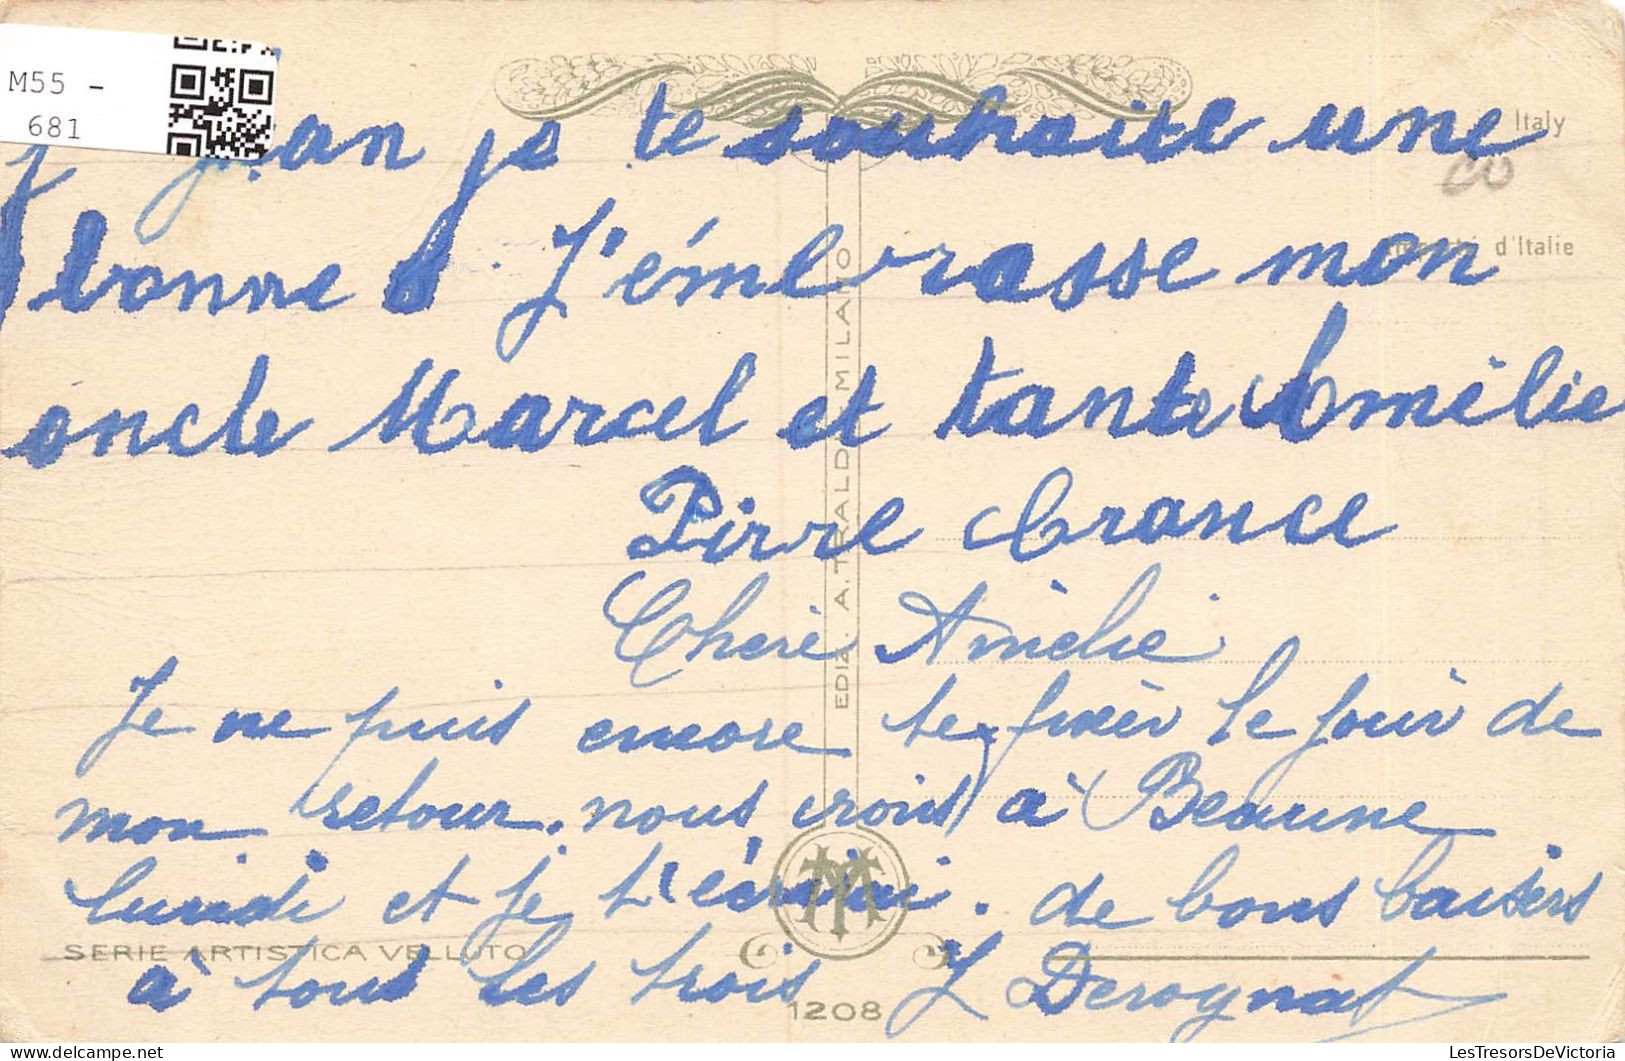 M55 -
681
Italy
Jean je te souhaite une
bonne J'émbrasse mon
d'Italie
oncle Marcel et tante Amélie
Pirre Crance
Cheré Amélie
Je ne puis encore te fixer le jour de
mon retour. nous irons à Beaune
lundi et je t'écrirai. de bons baisers
à tous les trois J Derognat
EDIZ. A. TRALDI MILANO
SERIE ARTISTICA VELLUTO
1208
LesTresorsDeVictoria